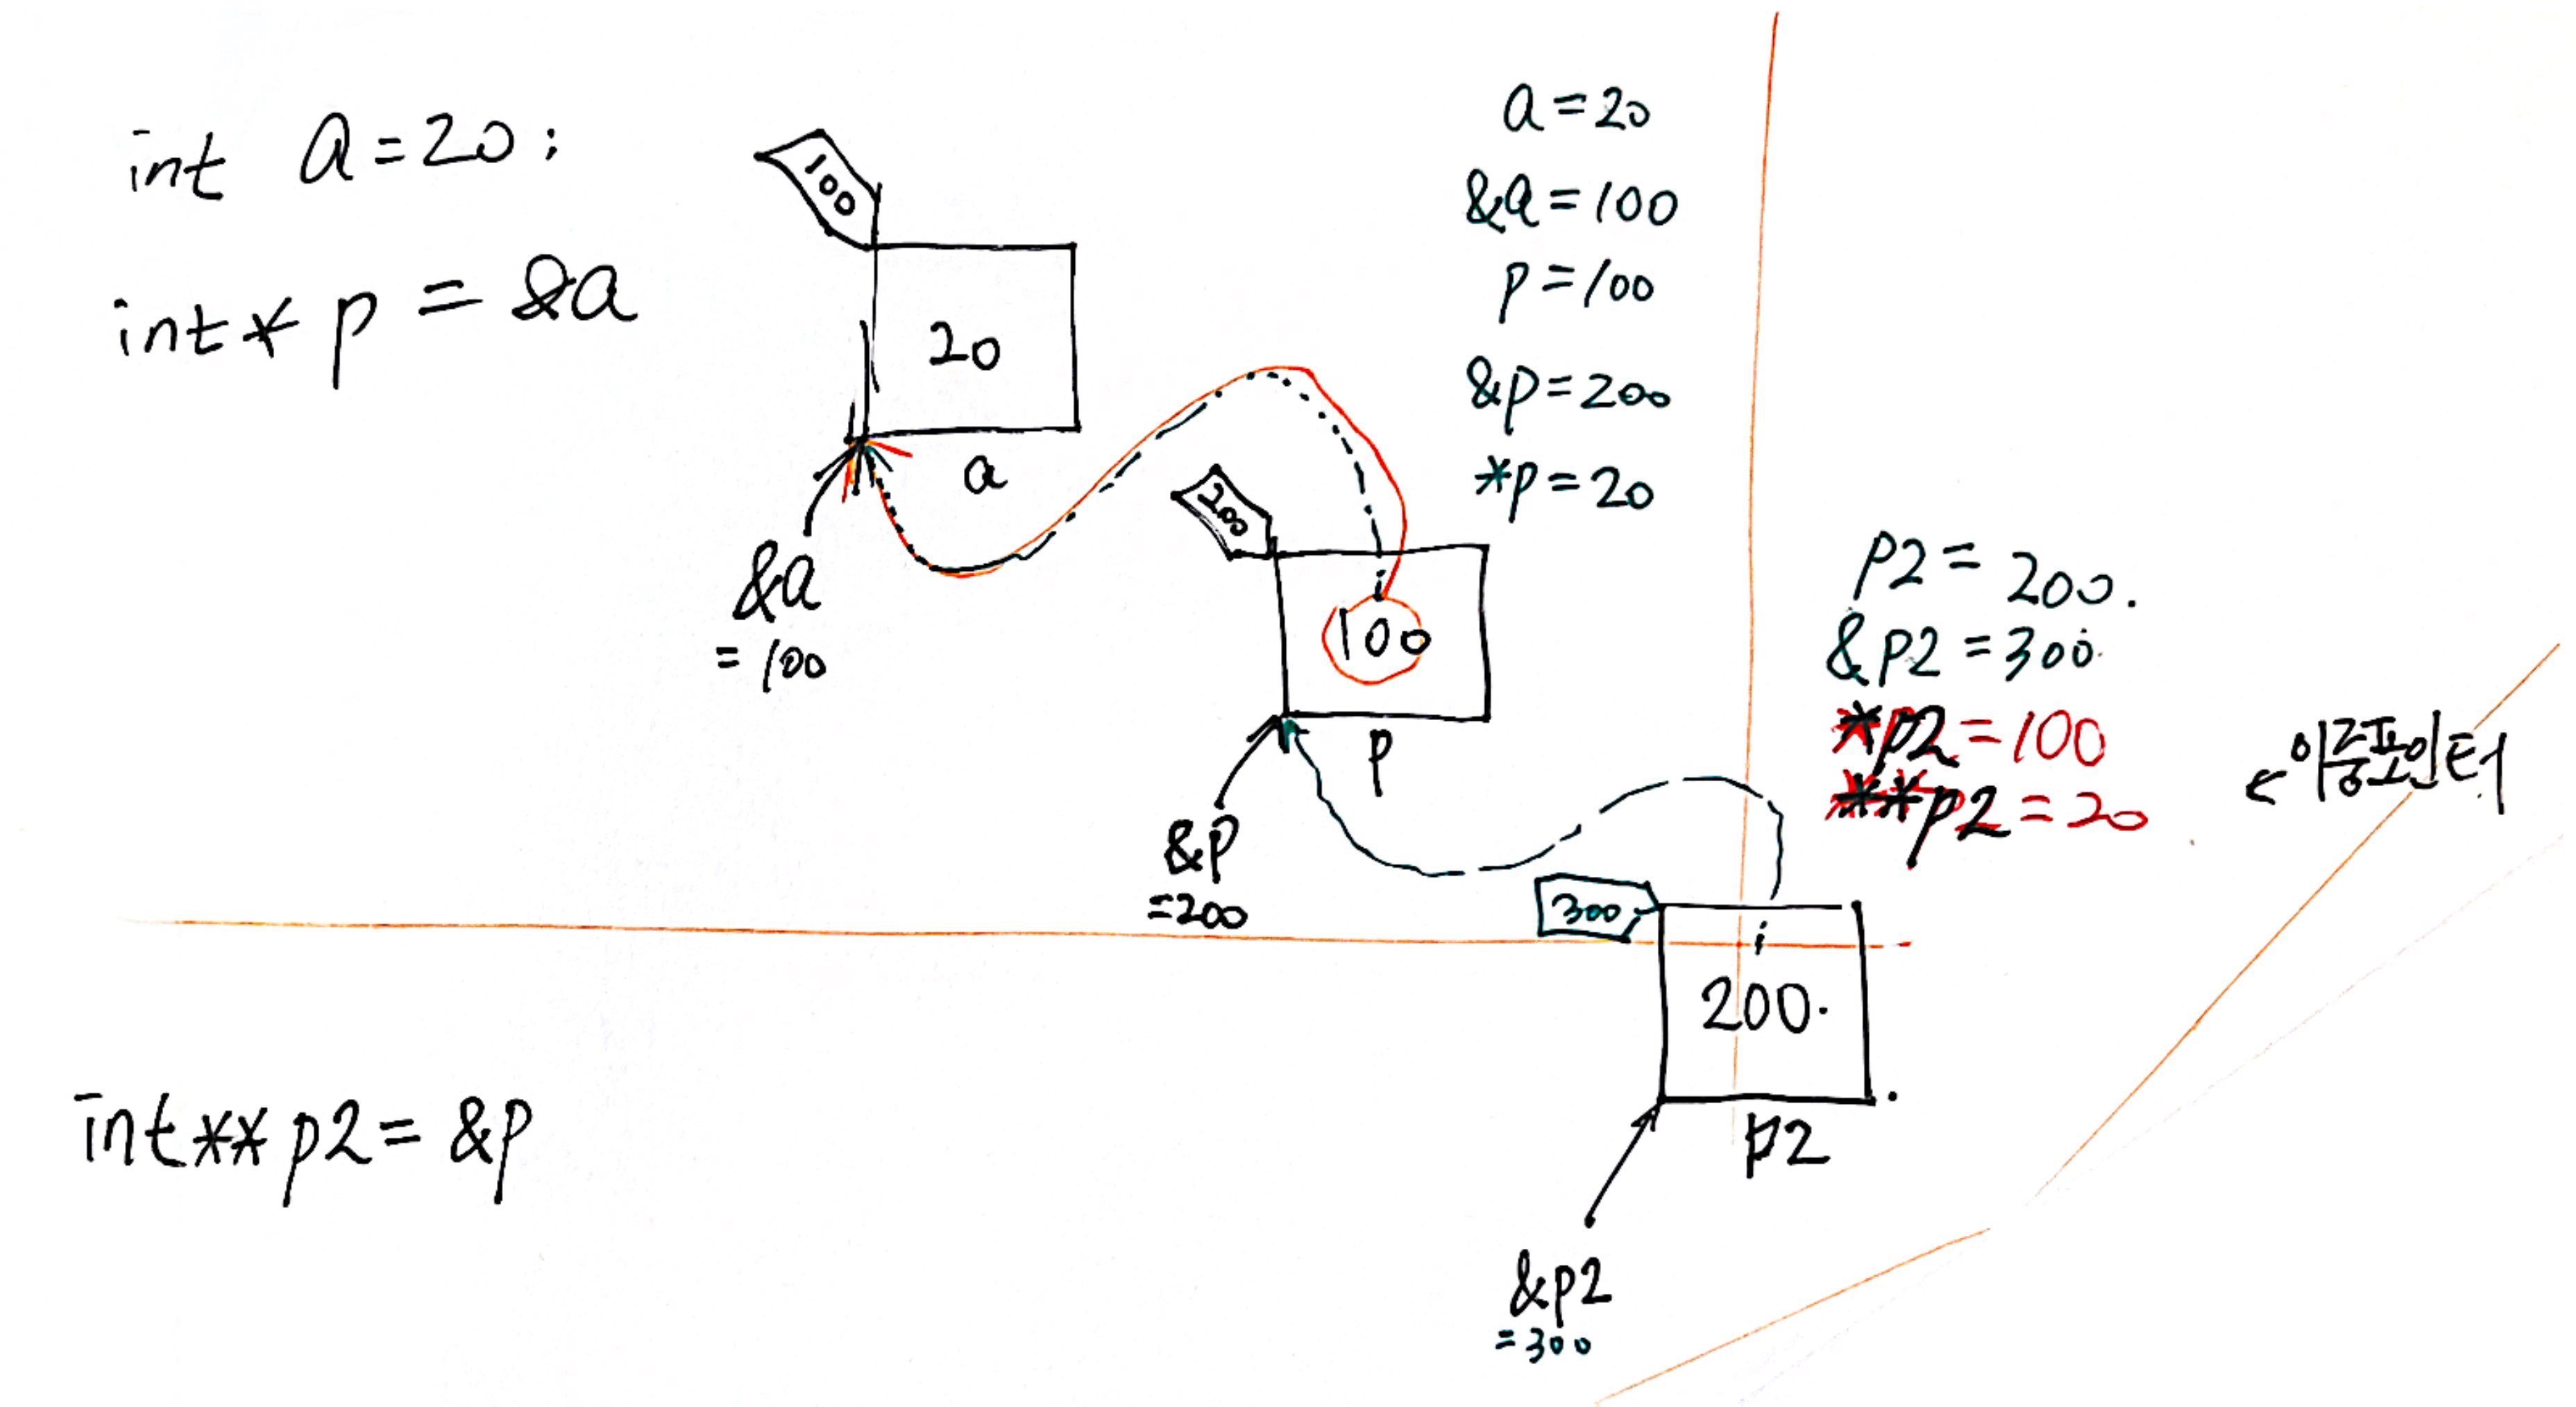 int a=20;
int* p = &a
100
20
a
&a
= 100
200
100
p
&p
=200
a=20
&a=100
p=100
&p=200
*p=20
p2=200.
&p2=300.
*p2=100
**p2=20
←이중포인터
300
200.
p2
&p2
=300
int**p2=&p